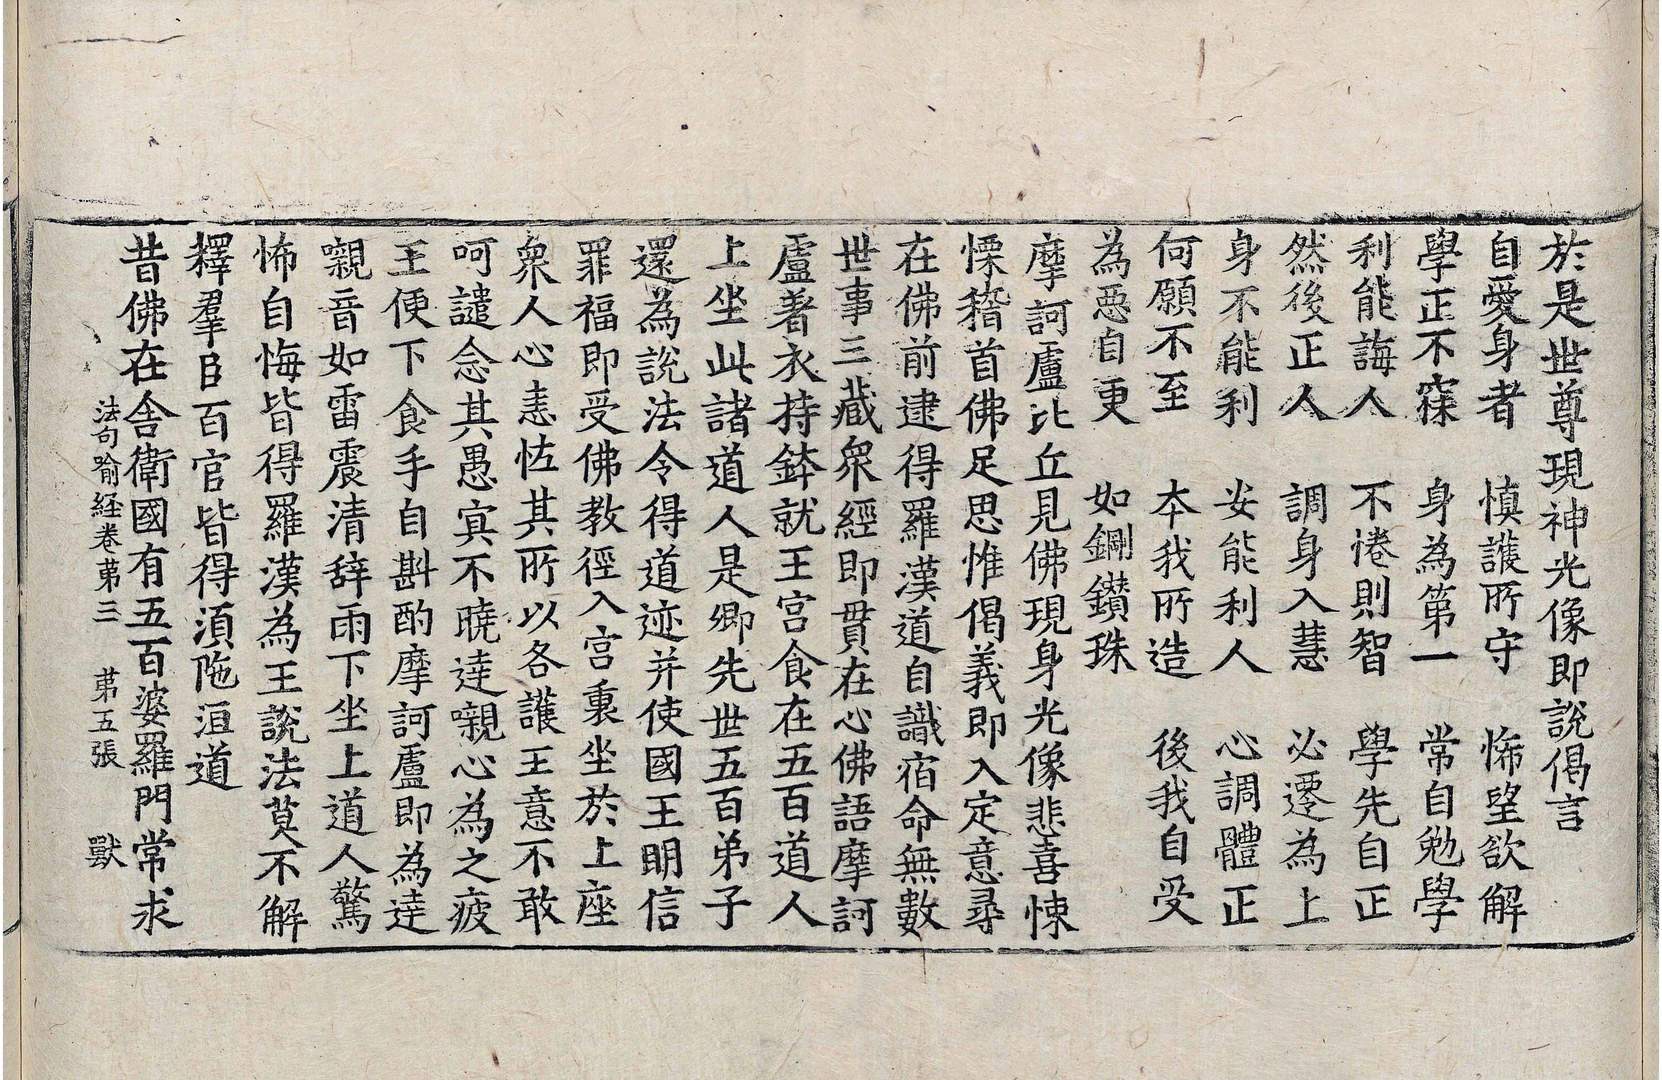 於是世尊現神光像即說偈言
自愛身者 慎護所守 悕望欲解
學正不寐 身為第一 常自勉學
利能誨人 不惓則智 學先自正
然後正人 調身入慧 必遷為上
身不能利 安能利人 心調體正
何願不至 本我所造 後我自受
為惡自更 如鋼鑽珠
摩訶盧比丘見佛現身光像悲喜悚
慄稽首佛足思惟偈義即入定意尋
在佛前逮得羅漢道自識宿命無數
世事三藏衆經即貫在心佛語摩訶
盧著衣持鉢就王宮食在五百道人
上坐此諸道人是卿先世五百弟子
還為說法令得道迹并使國王明信
罪福即受佛教徑入宮裏坐於上座
衆人心恚怪其所以各護王意不敢
呵譴念其愚冥不曉達嚫心為之疲
王便下食手自斟酌摩訶盧即為達
嚫音如雷震清辞雨下坐上道人驚
怖自悔皆得羅漢為王說法莫不解
釋羣臣百官皆得湏陁洹道
昔佛在舍衛國有五百婆羅門常求
法句喻経卷苐三 苐五張 獸